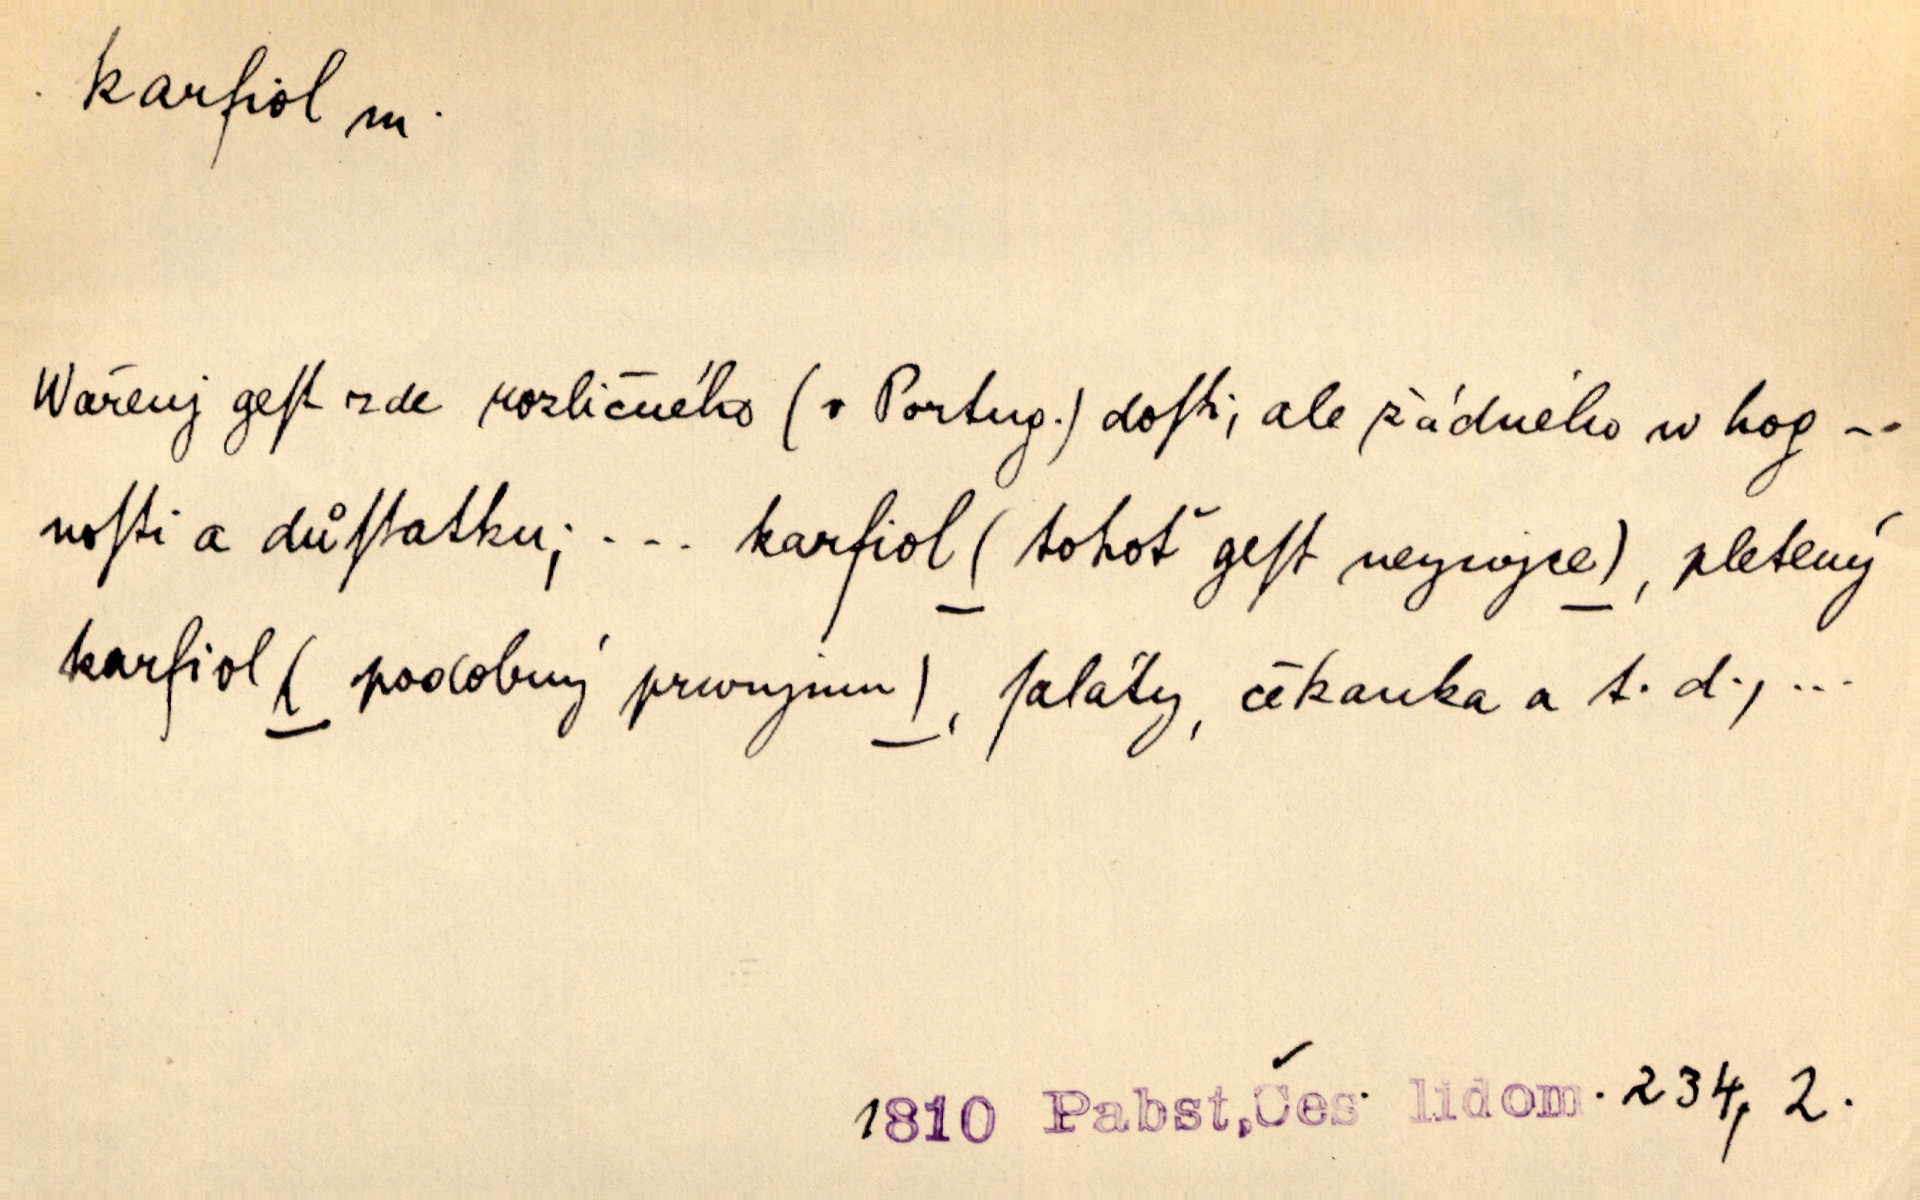 karfiol m.
Wařenj geſt zde rozličného (v Portug.) doſti, ale žádného w hog --
noſti a důſtatku; ... karfiol ( tohoť geſt neywjce), pletený
karfiol ( podobný prwnjmu ), ſaláty, čekanka a t. d., ...
1810 Pabst,Čes. lidom. 234, 2.